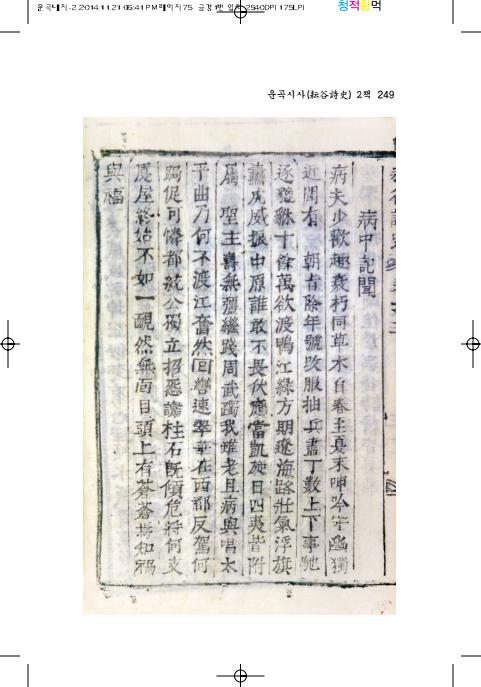 운곡대지-2.2014.11.21 05:41 PM 페이지 75
청적황먹
운곡시사(耘谷詩史) 2책 249
病中記聞
病夫少歡趣衰朽同草木自春至夏末呻吟守幽獨
近聞有 朝旨除年號改服抽兵盡丁數上下事馳
逐貔貅十餘萬欲渡鴨江綠方期遼海路壯氣浮旗
纛虎威振中原誰敢不畏伏應當凱旋日四夷皆附
屬 聖主壽無彊繼踐周武躅我雖老且病與唱太
平曲乃何不渡江奮然回轡速翠華在西都反駕何
跼促可憐都統公獨立招怨讟柱石旣傾危將何支
厦屋終始不如一靦然無面目頭上有蒼蒼焉知禍
與福